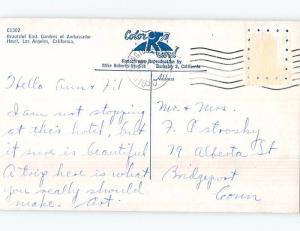 C1302
Beautiful East Gardens of Ambassador
Hotel, Los Angeles, California.
Color
Kodachrome Reproduction by
Mike Roberts Studios Berkeley 2, California
Address
Hello Ann &
I am not stopping
at this hotel, but
it sure is beautiful
A trip here is what
you really should
make. Art.
Mr. & Mrs.
F. Astrosky
79 Alberta St
Bridgeport
Conn